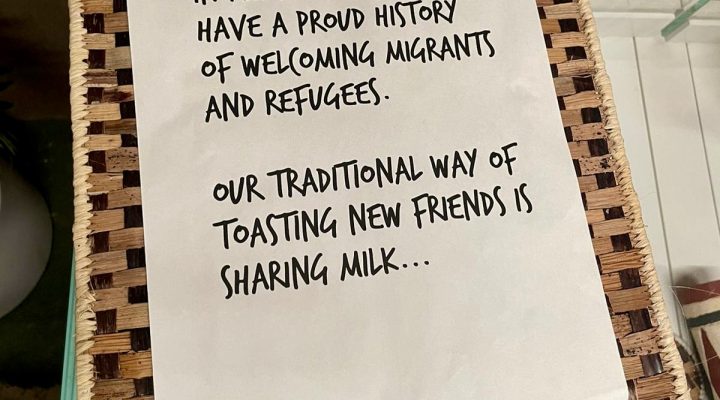 HAVE A PROUD HISTORY
OF WELCOMING MIGRANTS
AND REFUGEES.
OUR TRADITIONAL WAY OF
TOASTING NEW FRIENDS IS
SHARING MILK...